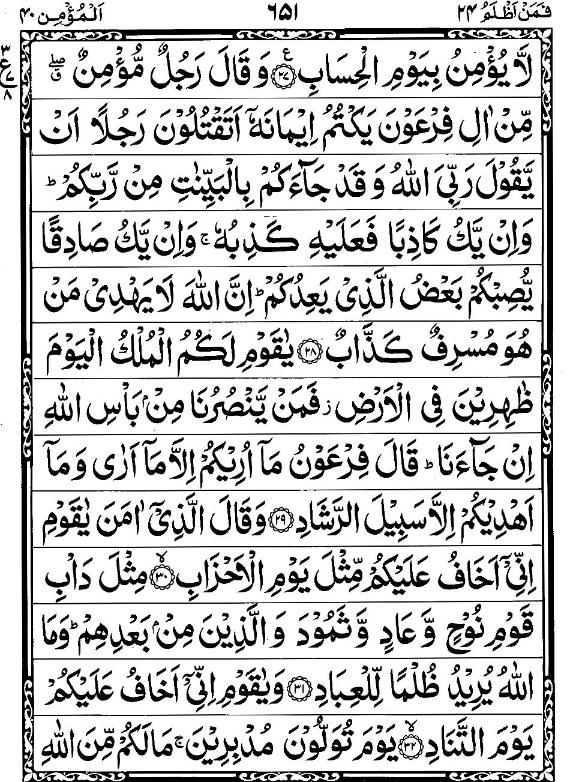 فَمَنْ اَظْلَمُ ٢٤ ٦٥١ اَلْمُؤْمِن ٤٠
لَّا يُؤْمِنُ بِيَوْمِ الْحِسَابِ ۟ ﴿٢٧﴾ ع وَ قَالَ رَجُلٌ مُّؤْمِنٌ ۖ ق
مِّنْ اٰلِ فِرْعَوْنَ يَكْتُمُ اِيْمَانَهٗۤ اَتَقْتُلُوْنَ رَجُلًا اَنْ
يَّقُوْلَ رَبِّيَ اللّٰهُ وَ قَدْ جَآءَكُمْ بِالْبَيِّنٰتِ مِنْ رَّبِّكُمْ ؕ
وَاِنْ يَّكُ كَاذِبًا فَعَلَيْهِ كَذِبُهٗ ۚ وَاِنْ يَّكُ صَادِقًا
يُّصِبْكُمْ بَعْضُ الَّذِيْ يَعِدُكُمْ ؕ اِنَّ اللّٰهَ لَا يَهْدِيْ مَنْ
هُوَ مُسْرِفٌ كَذَّابٌ ﴿٢٨﴾ يٰقَوْمِ لَكُمُ الْمُلْكُ الْيَوْمَ
ظٰهِرِيْنَ فِي الْاَرْضِ ز فَمَنْ يَّنْصُرُنَا مِنْۢ بَاْسِ اللّٰهِ
اِنْ جَآءَنَا ؕ قَالَ فِرْعَوْنُ مَاۤ اُرِيْكُمْ اِلَّا مَاۤ اَرٰى وَ مَاۤ
اَهْدِيْكُمْ اِلَّا سَبِيْلَ الرَّشَادِ ﴿٢٩﴾ وَقَالَ الَّذِيْۤ اٰمَنَ يٰقَوْمِ
اِنِّيْۤ اَخَافُ عَلَيْكُمْ مِّثْلَ يَوْمِ الْاَحْزَابِ ﴿٣٠﴾ لا مِثْلَ دَاْبِ
قَوْمِ نُوْحٍ وَّ عَادٍ وَّ ثَمُوْدَ وَ الَّذِيْنَ مِنْۢ بَعْدِهِمْ ؕ وَمَا
اللّٰهُ يُرِيْدُ ظُلْمًا لِّلْعِبَادِ ﴿٣١﴾ وَيٰقَوْمِ اِنِّيْۤ اَخَافُ عَلَيْكُمْ
يَوْمَ التَّنَادِ ﴿٣٢﴾ لا يَوْمَ تُوَلُّوْنَ مُدْبِرِيْنَ ۚ مَا لَكُمْ مِّنَ اللّٰهِ
٣
ع
٧
٨